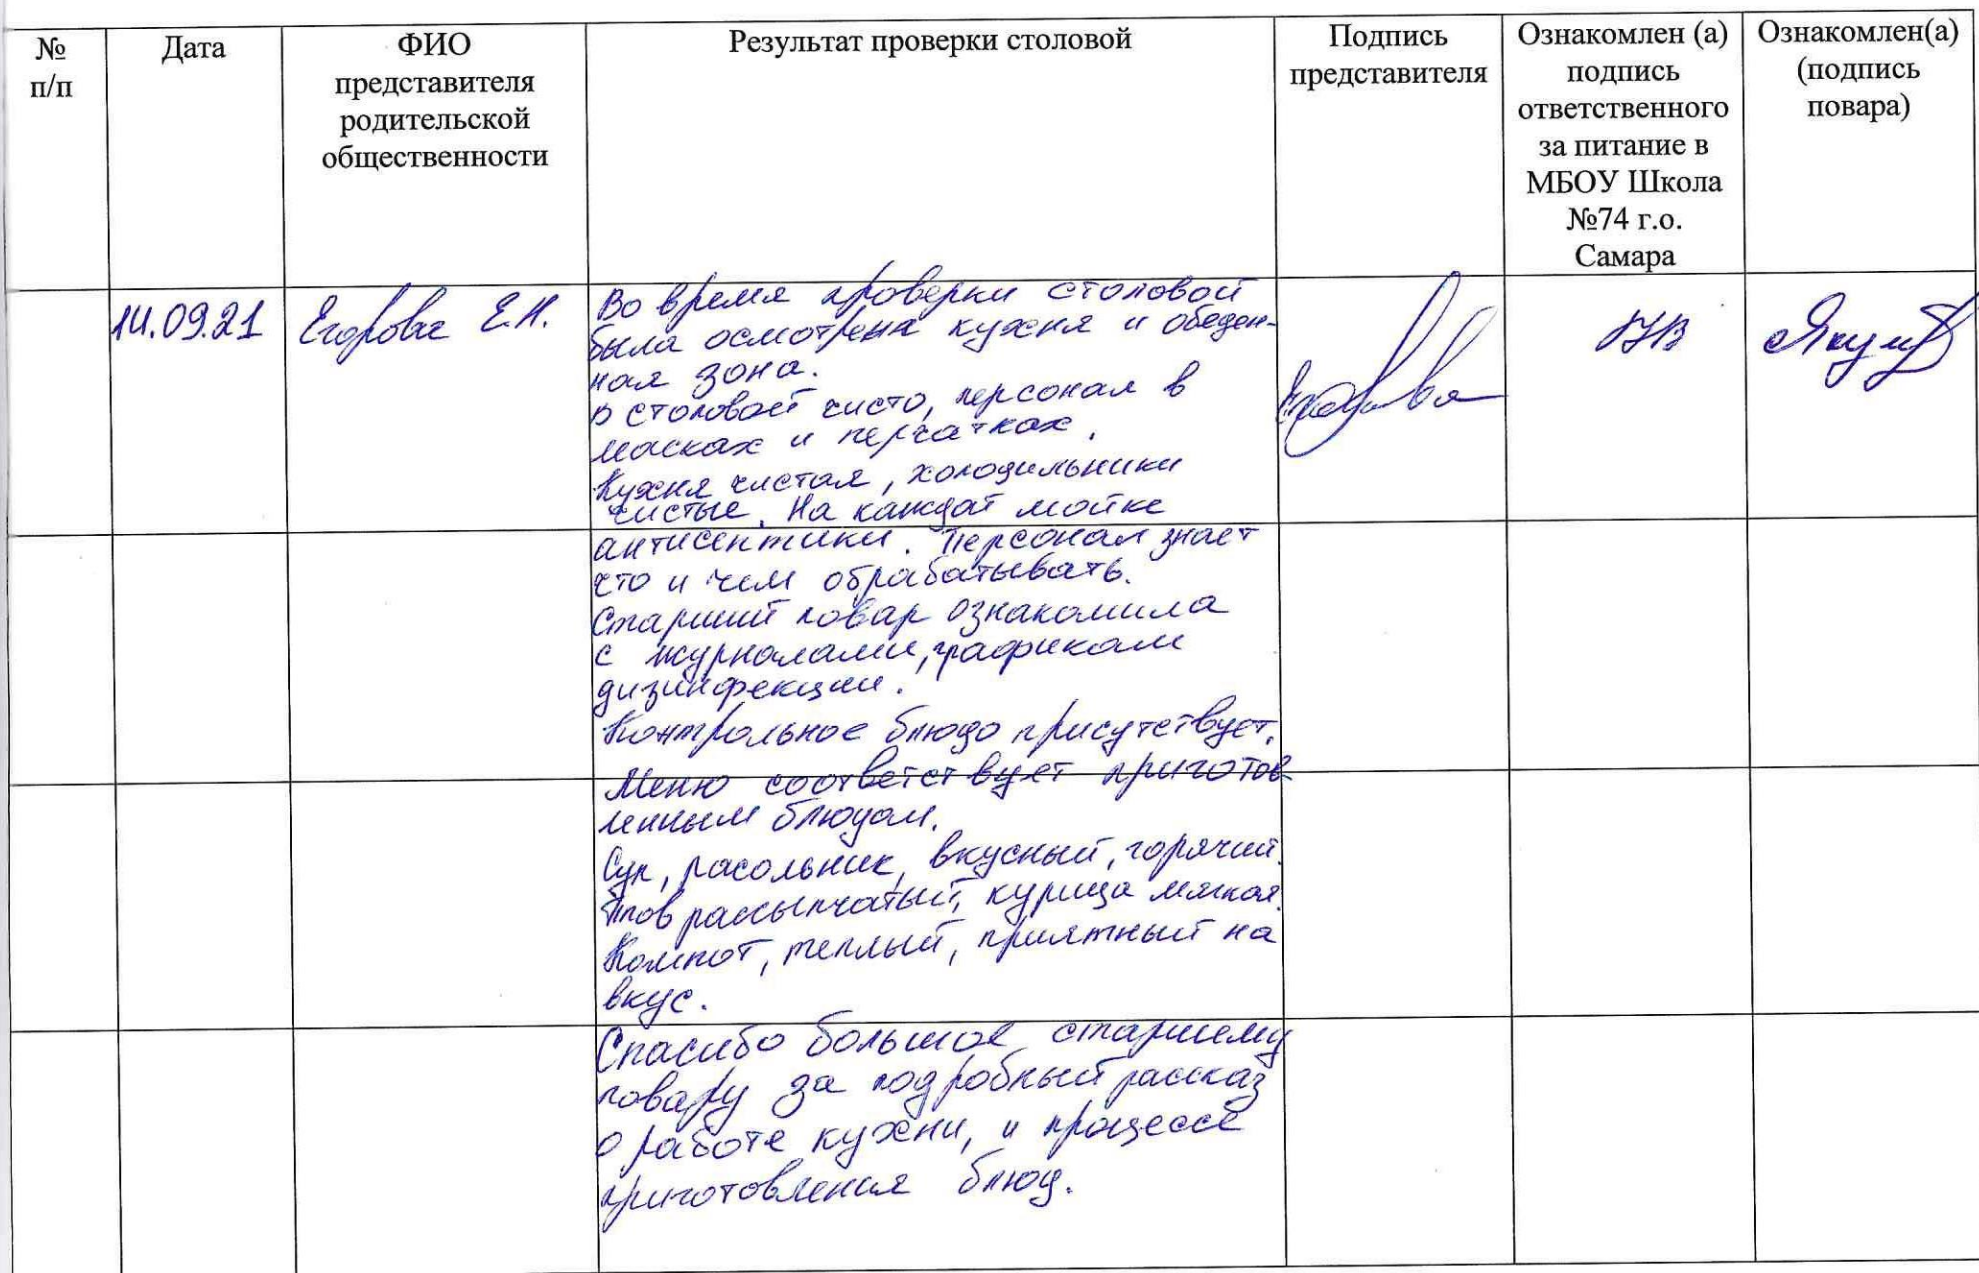 №
п/п
Дата
ФИО
представителя
родительской
общественности
Результат проверки столовой
Подпись
представителя
Ознакомлен (а)
подпись
ответственного
за питание в
МБОУ Школа
№74 г.о.
Самара
Ознакомлен(а)
(подпись
повара)
14.09.21
Егорова Е.Н.
Во время проверки столовой
была осмотрена кухня и обеден-
ная зона.
В столовой чисто, персонал в
масках и перчатках.
Кухня чистая, холодильники
чистые. На каждой мойке
антисептики. Персонал знает
что и чем обрабатывать.
Старший повар ознакомила
с журналами, графикам
дизинфекции.
Контрольное блюдо присутствует.
Меню соответствует приготов-
ленным блюдам.
Суп, расольник, вкусный, горячий.
Плов рассыпчатый, курица мягкая.
Компот, теплый, приятный на
вкус.
Спасибо большое старшему
повару за подробный рассказ
о работе кухни, и процессе
приготовления блюд.
Егорова